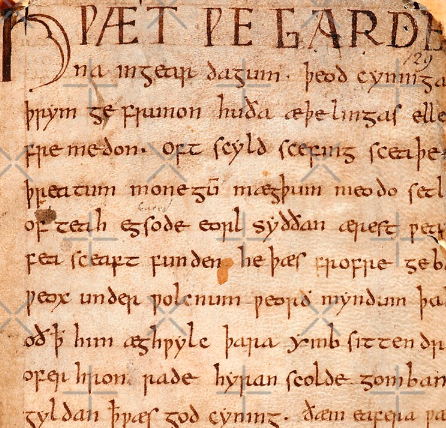 HǷÆT ǷE GARDE
129
na ingear dagum . þeod cyninga
þrym ge frunon huða æþelingas elle
fremedon. oft scyld scefing sceaþe
þreatum monegū mægþum meodo setl
of teah egsode eorl syððan ærest ƿear
fea sceaft funden he þæs frofre geb
ƿeox under ƿolcnum ƿeorð myndum þa
oð ꝥ him æghƿylc þara ymb sittendr
ofer hron rade hyran scolde gomban
gyldan ꝥ ƿæs god cyning. ðæm eafera ƿæ